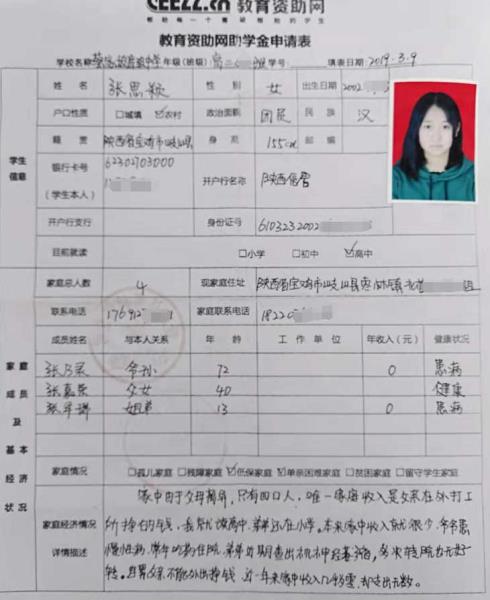 CEEZZ.cn 教育资助网
教育资助网助学金申请表
学校名称 年级(班级) 高二 班 学号 填表日期 2019.3.9
姓名 张思颖 性别 女 出生日期 2002
户口性质 □城镇 ☑农村 政治面貌 团员 民族 汉
籍贯 陕西省宝鸡市岐山县 身高 155cm 邮编
学生信息
银行卡号(学生本人) 62302703000 开户行名称 陕西信合
开户行支行 身份证号 6103232002
目前就读 □小学 □初中 ☑高中
家庭总人数 4 现家庭住址 陕西省宝鸡市岐山县 镇 组
联系电话 176912 1 家庭联系电话 18220
成员姓名 与本人关系 年龄 工作单位 年收入(元) 健康状况
张 爷孙 72 0 患病
张嘉荣 父女 40 健康
张 姐弟 13 0 患病
家庭成员及基本经济状况
家庭情况 □孤儿家庭 □残障家庭 ☑低保家庭 ☑单亲困难家庭 □贫困家庭 □留守学生家庭
家庭经济情况详情描述
家中由于父母离异,只有四口人,唯一家庭收入是父亲在外打工
所挣的钱,我帮忙 高中,弟弟还在小学。本来家中收入就很少,爷爷患
慢性病,常年吃药住院,弟弟近期查出 ,多次转院也无好
转。且累父亲不能外出挣钱 近一年来家中收入几乎为零,却支出无数。